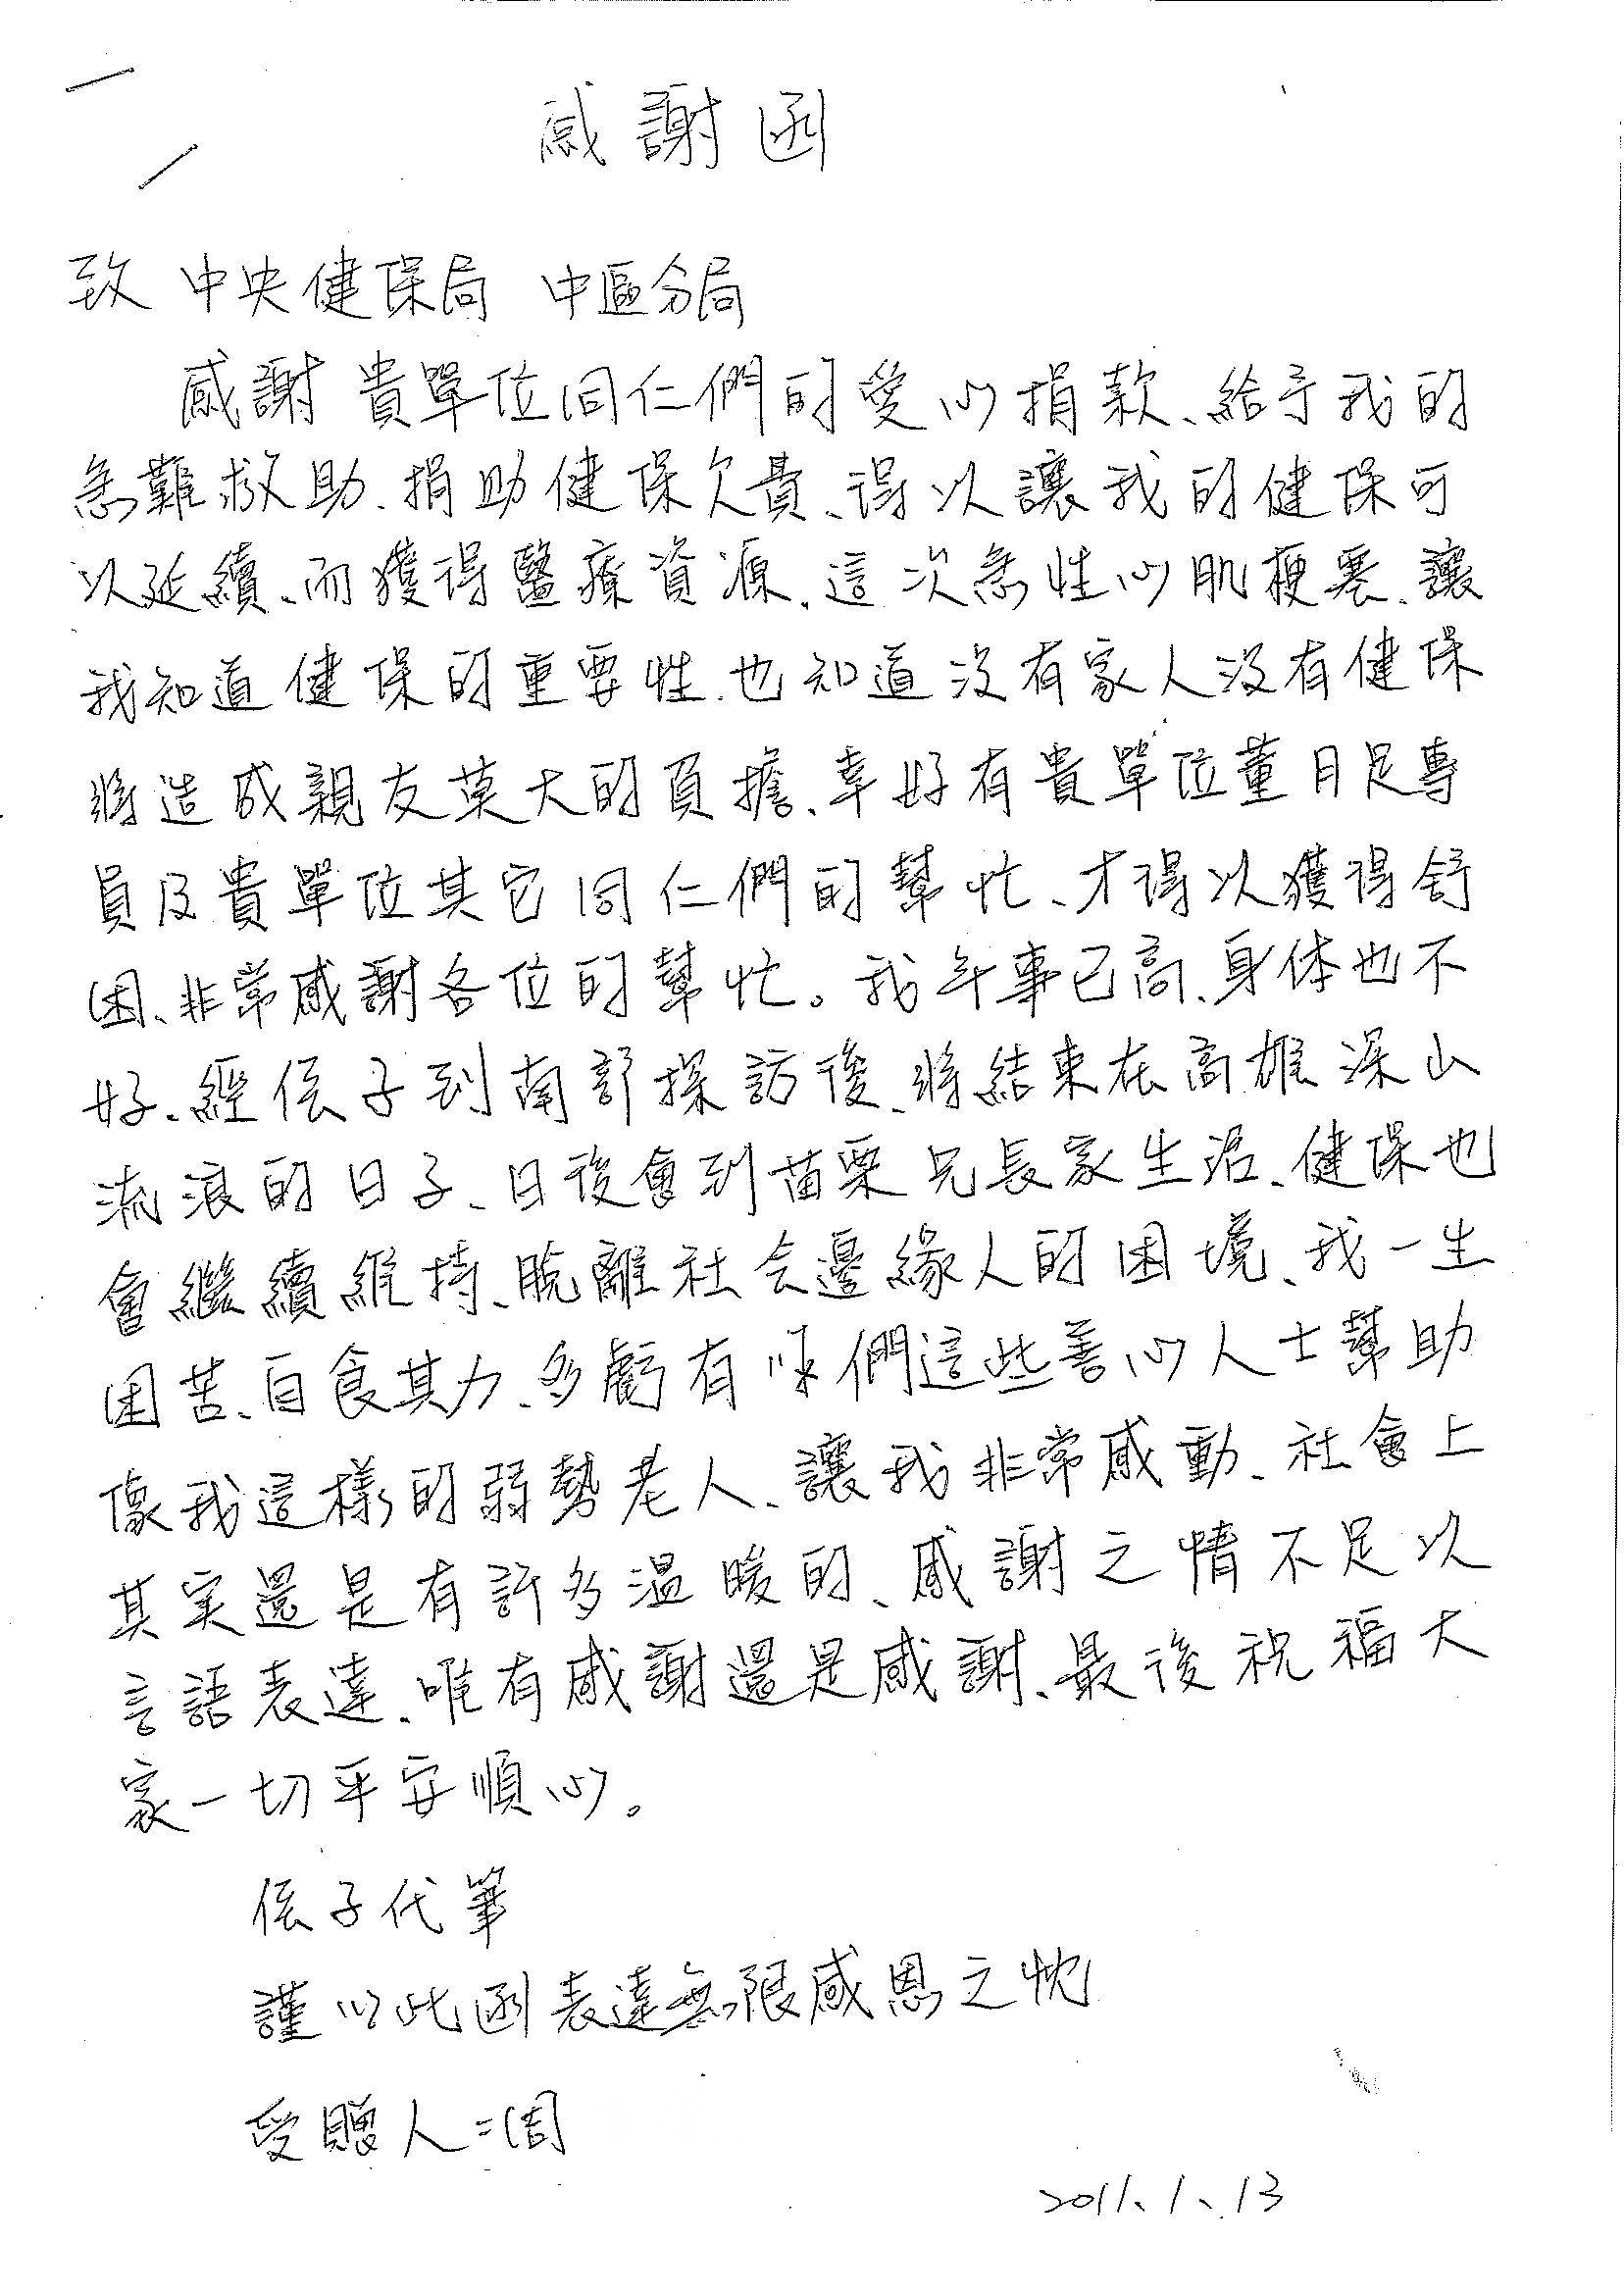 感謝函
致 中央健保局 中區分局
感謝 貴單位同仁們的愛心捐款、給予我的
急難救助、捐助健保欠費、得以讓我的健保可
以延續、而獲得醫療資源、這次急性心肌梗塞、讓
我知道健保的重要性、也知道沒有家人沒有健保
將造成親友莫大的負擔、幸好有貴單位董月足專
員及貴單位其它同仁們的幫忙、才得以獲得舒
困、非常感謝各位的幫忙。我年事已高、身体也不
好、經侄子到南部探訪後、將結束在高雄深山
流浪的日子、日後會到苗栗兄長家生活、健保也
會繼續維持、脫離社会邊緣人的困境、我一生
困苦、自食其力、多虧有你們這些善心人士幫助
像我這樣的弱勢老人、讓我非常感動、社會上
其实還是有許多溫暖的、感謝之情不足以
言語表達、唯有感謝還是感謝、最後祝福大
家一切平安順心。
侄子代筆
謹以此函表達無限感恩之忱
受贈人:周
2011、1、13